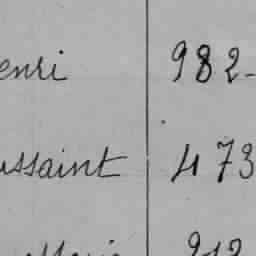 enri 982-
ussaint 473